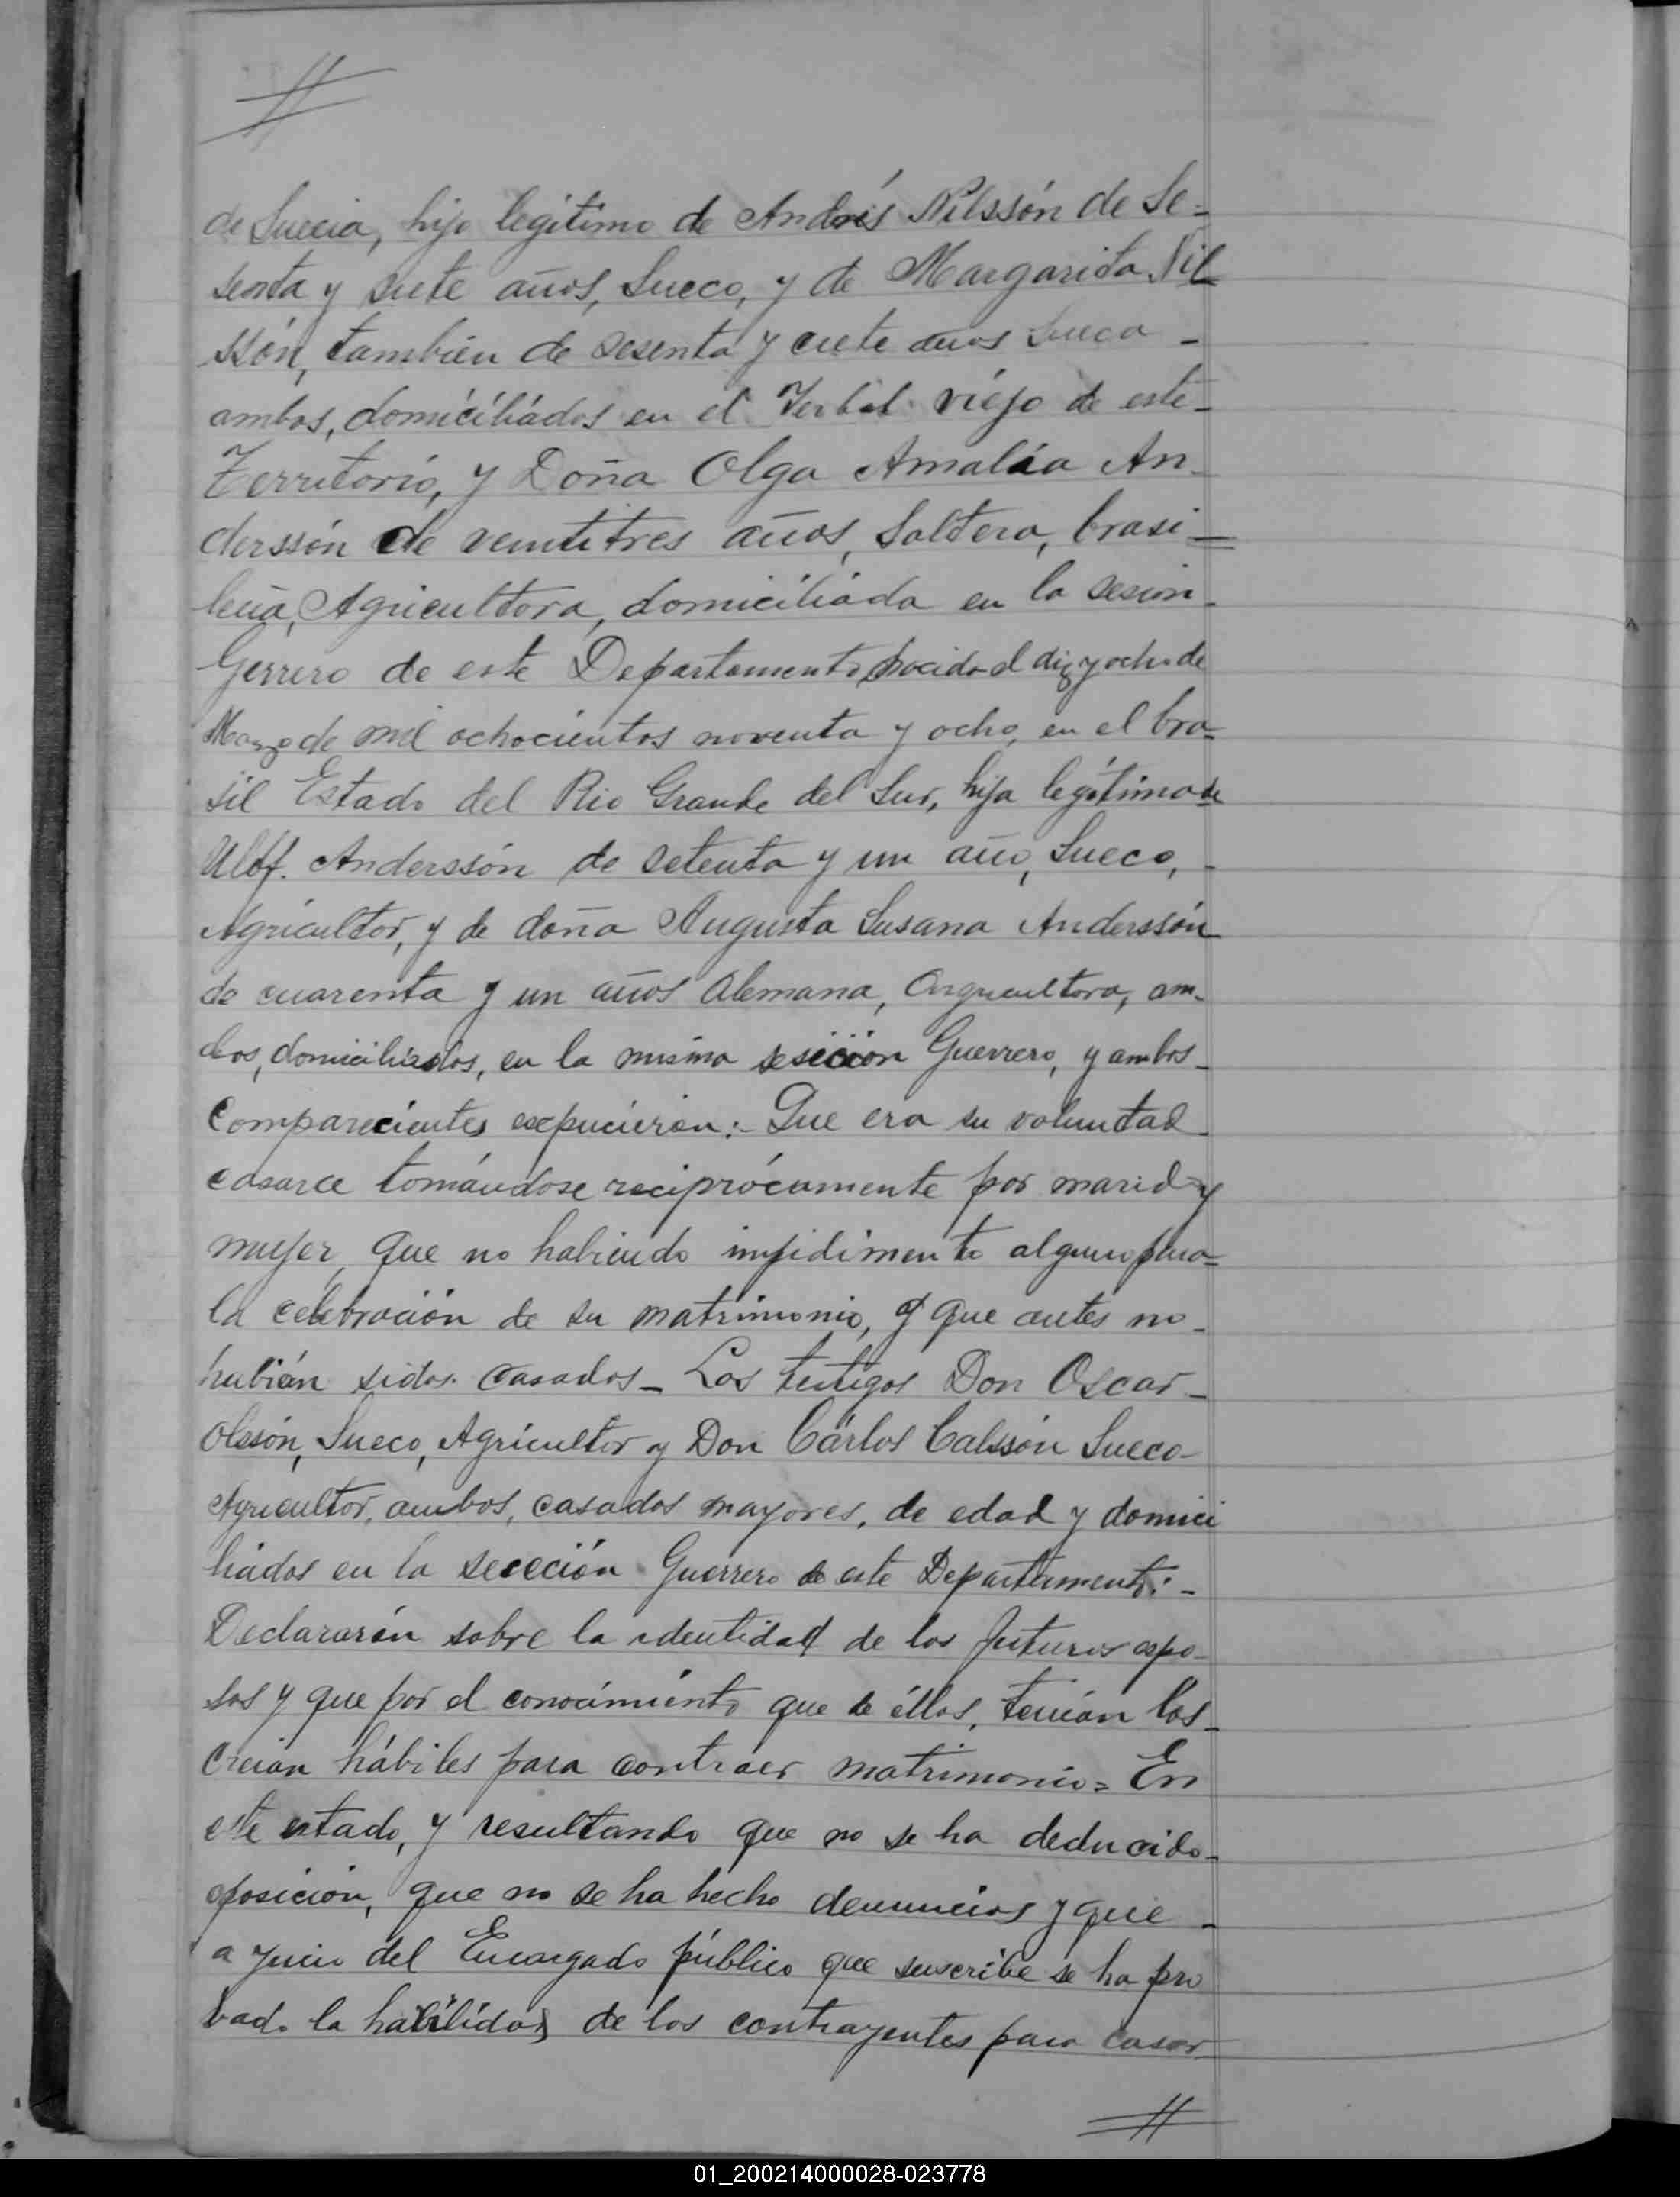 de Suecia, hijo legítimo de Andrés Nilssón de Se-
senta y siete años, Sueco, y de Margarita Nil
ssón, también de sesenta y ciete años Sueca -
ambos, domiciliádos en el Yerbal viéjo de este-
Territorio, y Doña Olga Amalia An-
derssón de veintitres años, Soltera, brasi-
leña, Agricultora, domiciliáda en la sesion-
Gerrero de este Departamento, nacida el diz y ocho de
Marzo de mil ochocientos noventa y ocho, en el bra-
sil Estado del Rio Grande del Sur, hija legítima de
Ulof. Anderssón de setenta y un año, Sueco, -
Agricultor, y de doña Augusta Susana Anderssón
de cuarenta y un años Alemana, Angricultora, am-
bos, domiciliados, en la misma sesición Guerrero, y ambos-
Comparecientes expucieron:- Que era su voluntad-
casarce tomándose reciprócamente por marid y
mujer, que no habiendo impidimento alguno para-
la celebración de su matrimonio, y que antes no-
hubián sidos. casados- Los testigos Don Oscar-
Olssón, Sueco, Agricultor y Don Cárlos Calssón Sueco-
Agricultor, ambos, casados mayores, de edad y domici
liádos en la seccción Guerrero de este Departamento:-
Declararón sobre la identidad de los futuros espo-
sos y que por el conocimiénto que de éllos, tenían los-
creian hábiles para contraer matrimonio= En
este estado, y resultando que no se ha deducido-
oposición, que no se ha hecho denuncias y que -
a juicio del Encargado público que suscribe se ha pro
bado la habilidad de los contrayentes para casar-
01_200214000028-023778